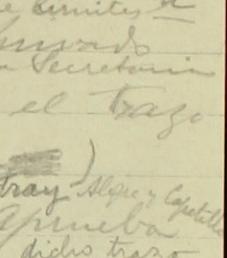 e Limites
Privado
a Secretaria
el trazo
)
tray Alque y Capetillo
aprueba
dicho trazo